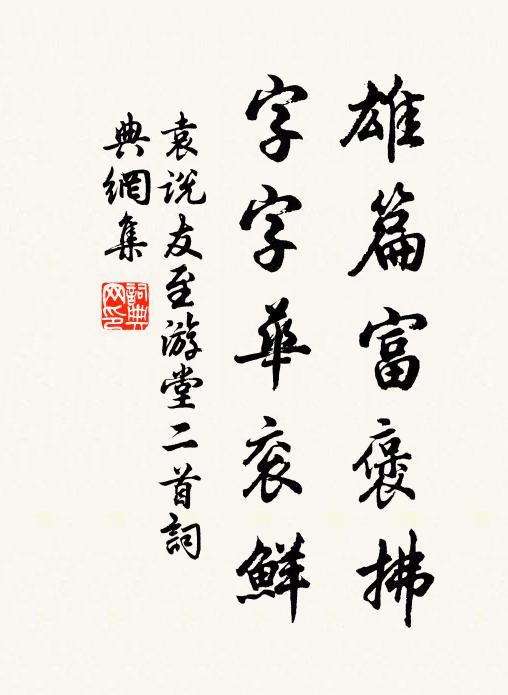 雄篇富褒拂
字字華衮鮮
袁说友至游堂二首詞
典網集
詞典
网印